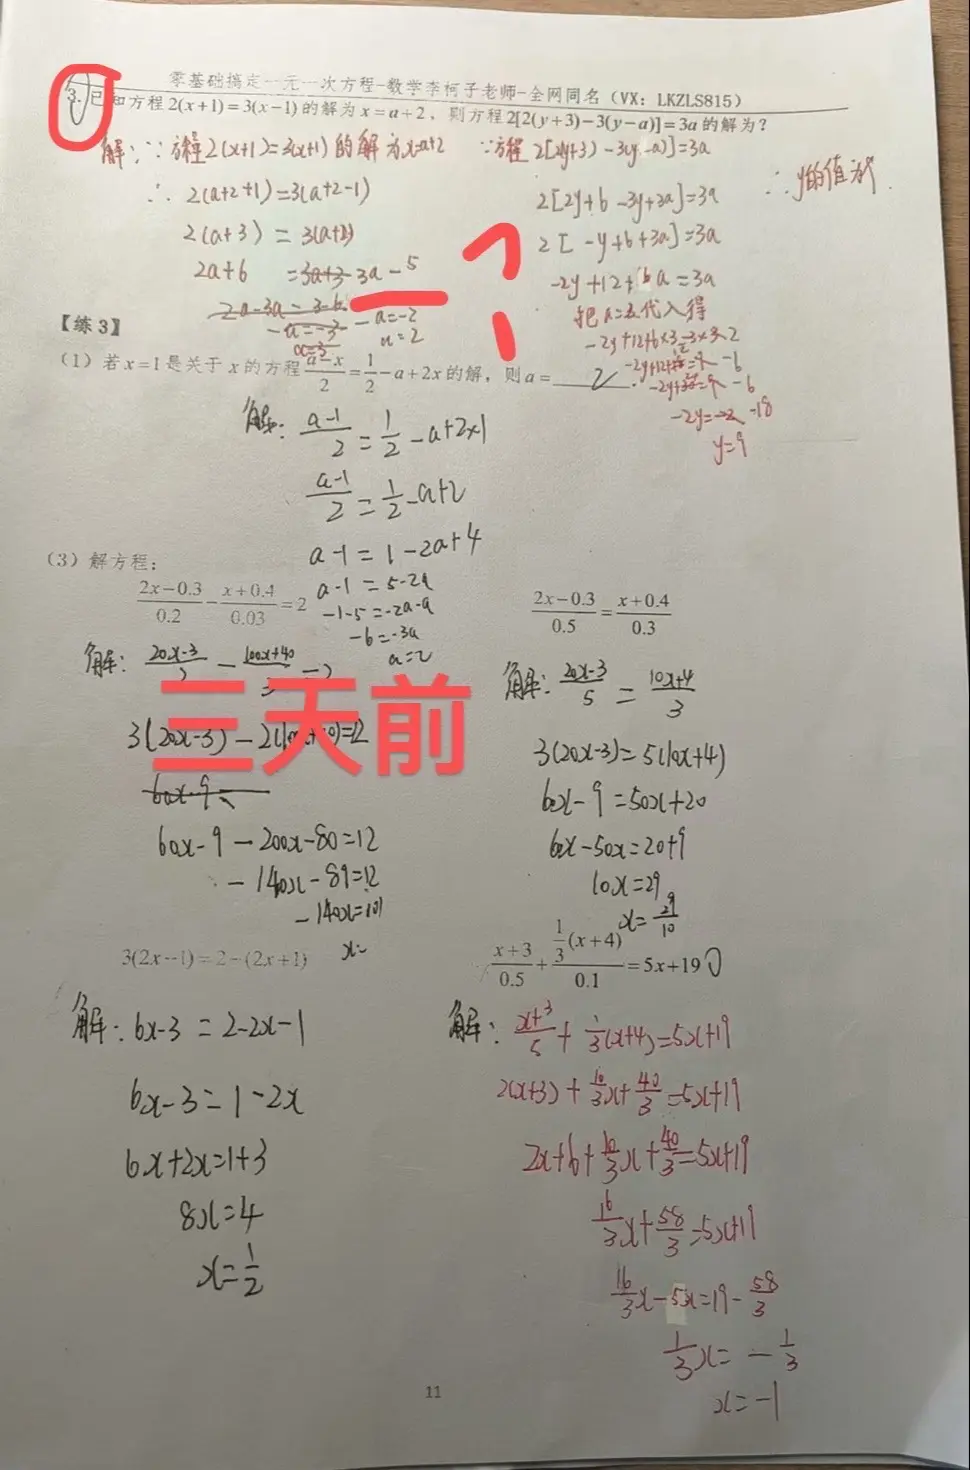 零基础搞定一元一次方程-数学李柯子老师-全网同名（VX：LKZLS815）
3. 已知方程2(x+1)=3(x-1)的解为x=a+2，则方程2[2(y+3)-3(y-a)]=3a的解为？
解：∵方程2(x+1)=3(x+1)的解为x=a+2
∴ 2(a+2+1)=3(a+2-1)
2(a+3) = 3(a+1)
2a+6 =3a+3 3a-5
2a-3a=3-6
-a=-3 -a=-2
a=2
∵方程 2[2(y+3)-3(y-a)]=3a
2[2y+6-3y+3a]=3a
2[-y+6+3a]=3a
-2y+12+6a=3a
把a=2代入得
-2y=-18
y=9
∴y的值为9.
？
【练3】
（1）若x=1是关于x的方程(a-x)/2=1/2-a+2x的解，则a=2.
解：(a-1)/2=1/2-a+2×1
(a-1)/2=1/2-a+2
a-1=1-2a+4
a-1=5-2a
-1-5=-2a-a
-6=-3a
a=2
（3）解方程：
(2x-0.3)/0.2-(x+0.4)/0.03=2
解：(20x-3)/2-(100x+40)/3=2
三天前
3(20x-3)-2(100x+40)=12
60x-9
60x-9-200x-80=12
-140x-89=12
-140x=101
x=
(2x-0.3)/0.5=(x+0.4)/0.3
解：(20x-3)/5=(10x+4)/3
3(20x-3)=5(10x+4)
60x-9=50x+20
60x-50x=20+9
10x=29
x=29/10
3(2x-1)=2-(2x+1)
解：6x-3=2-2x-1
6x-3=1-2x
6x+2x=1+3
8x=4
x=1/2
(x+3)/0.5+1/3(x+4)/0.1=5x+19
解：(x+3)/5+1/3(x+4)=5x+19
2(x+3)+10/3x+40/3=5x+19
2x+6+10/3x+40/3=5x+19
16/3x+58/3=5x+19
16/3x-5x=19-58/3
1/3x=-1/3
x=-1
11